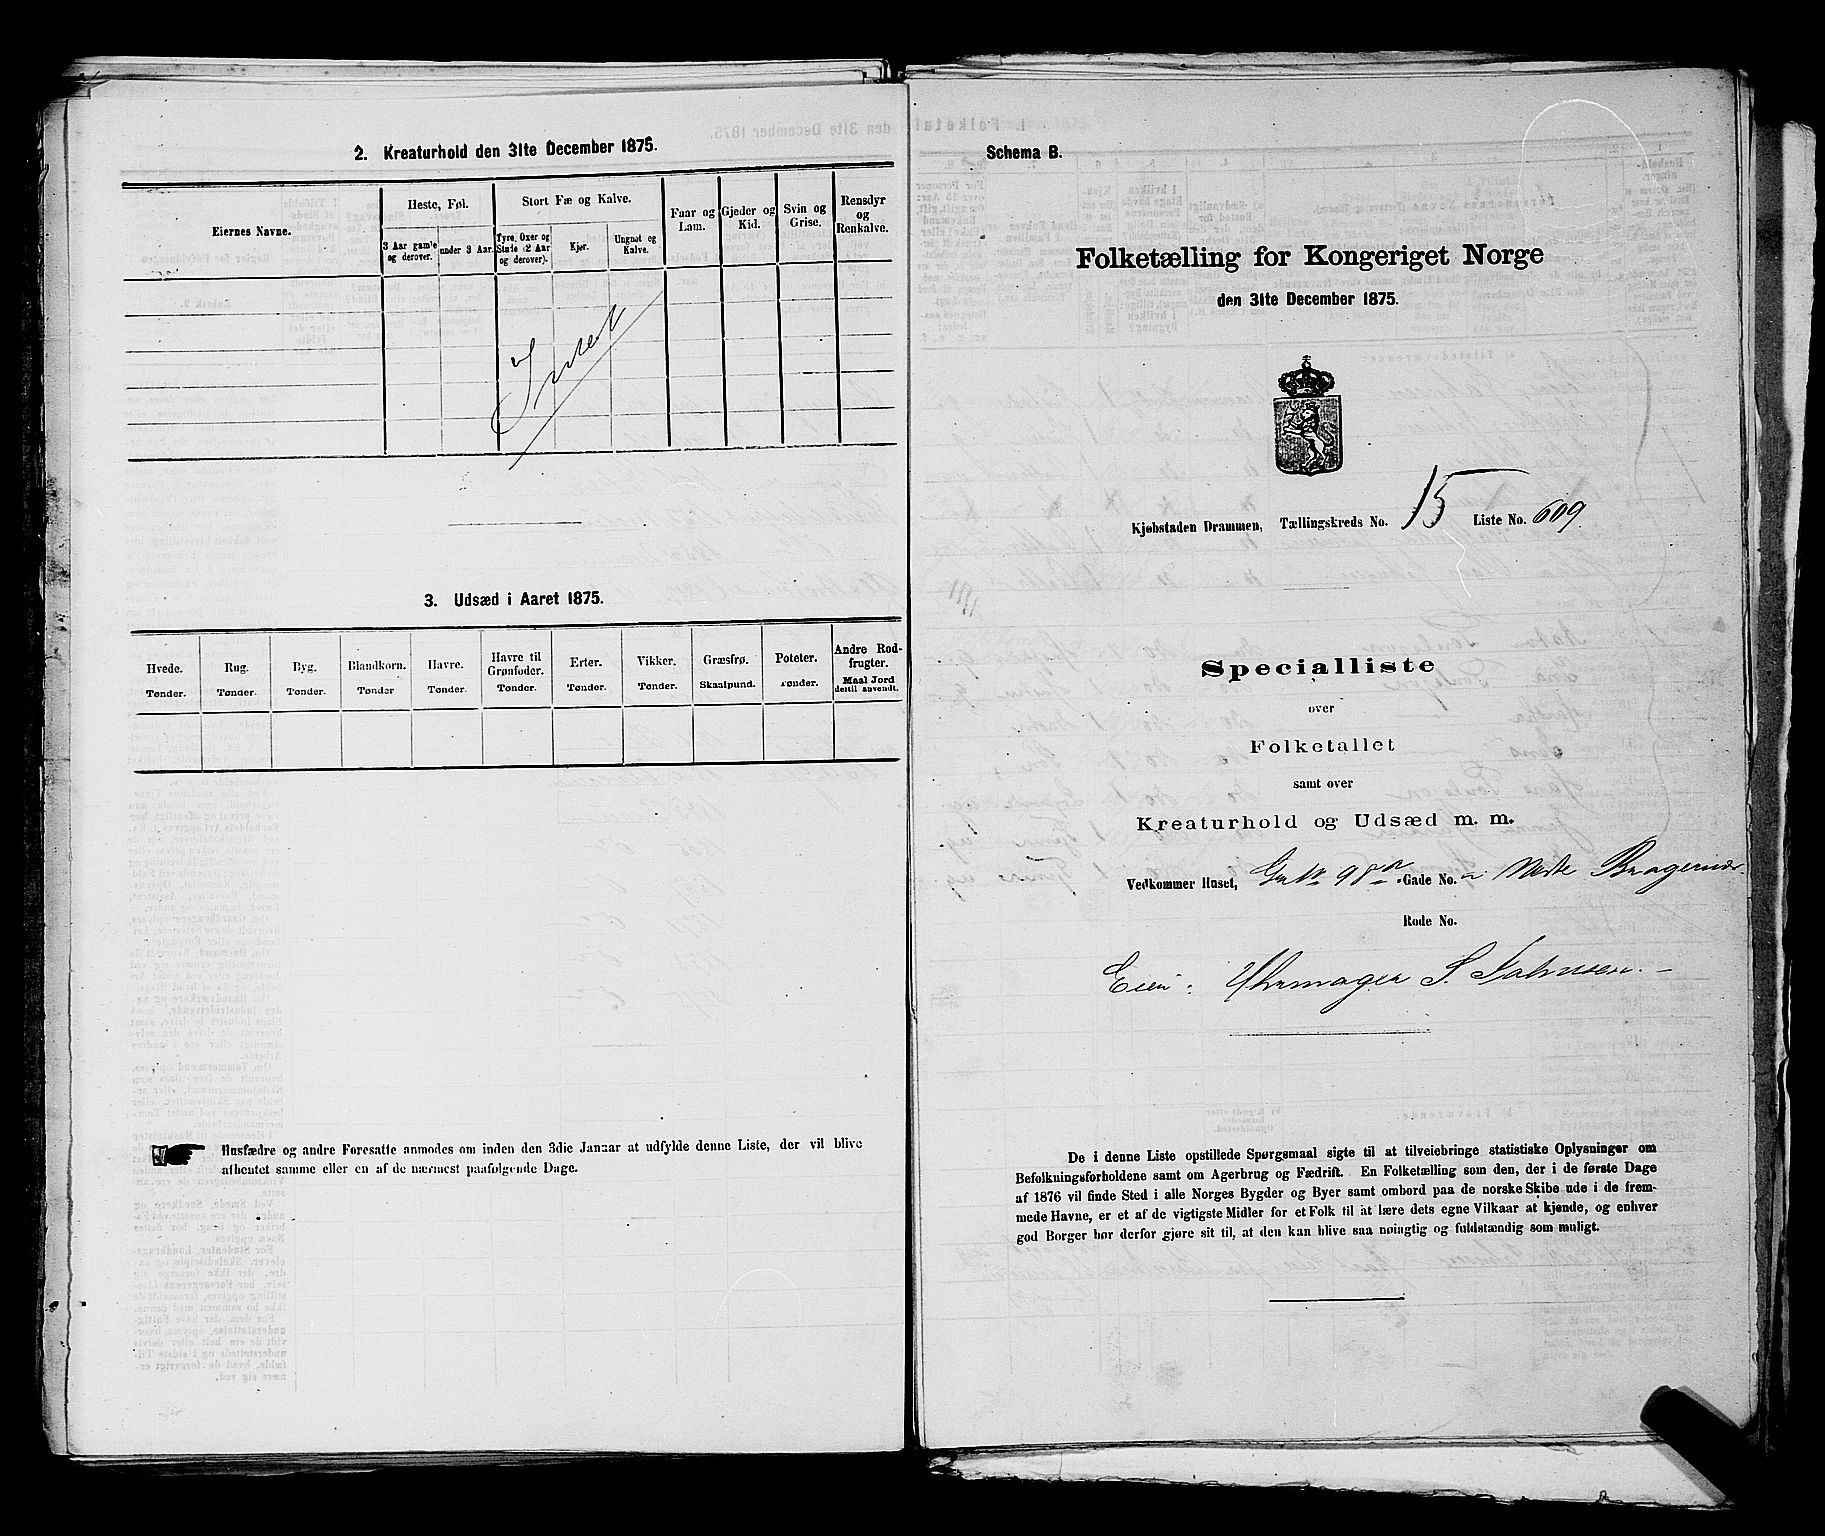 2. Kreaturhold den 31te December 1875.
Eiernes Navne.
Heste, Føl.
Stort Fæ og Kalve.
Faar og Lam.
Gjeder og Kid.
Svin og Grise.
Rensdyr og Renkalve.
3 Aar gamle og derover.
under 3 Aar.
Tyre, Oxer og Stude (2 Aar og derover).
Kjør.
Ungnøt og Kalve.
Intet
3. Udsæd i Aaret 1875.
Hvede. Tønder.
Rug. Tønder.
Byg. Tønder.
Blandkorn. Tønder
Havre. Tønder.
Havre til Grønfoder. Tønder.
Erter. Tønder.
Vikker. Tønder.
Græsfrø. Skaalpund.
Poteter. Tønder.
Andre Rodfrugter. Maal Jord dertil anvendt.
Husfædre og andre Foresatte anmodes om inden den 3die Januar at udfylde denne Liste, der vil blive
afhentet samme eller en af de nærmest paafølgende Dage.
Schema B.
Folketælling for Kongeriget Norge
den 31te December 1875.
Kjøbstaden Drammen, Tællingskreds No. 15 Liste No. 609
Specialliste
over
Folketallet
samt over
Kreaturhold og Udsæd m. m.
Vedkommer Huset, Gr. No 98a. Gade No. Vestre Bragernæs.
Rode No.
Eier: Uhrmager S. Salvesen.
De i denne Liste opstillede Spørgsmaal sigte til at tilveiebringe statistiske Oplysninger om
Befolkningsforholdene samt om Agerbrug og Fædrift. En Folketælling som den, der i de første Dage
af 1876 vil finde Sted i alle Norges Bygder og Byer samt ombord paa de norske Skibe ude i de frem-
mede Havne, er et af de vigtigste Midler for et Folk til at lære dets egne Vilkaar at kjende, og enhver
god Borger bør derfor gjøre sit til, at den kan blive saa nøiagtig og fuldstændig som muligt.